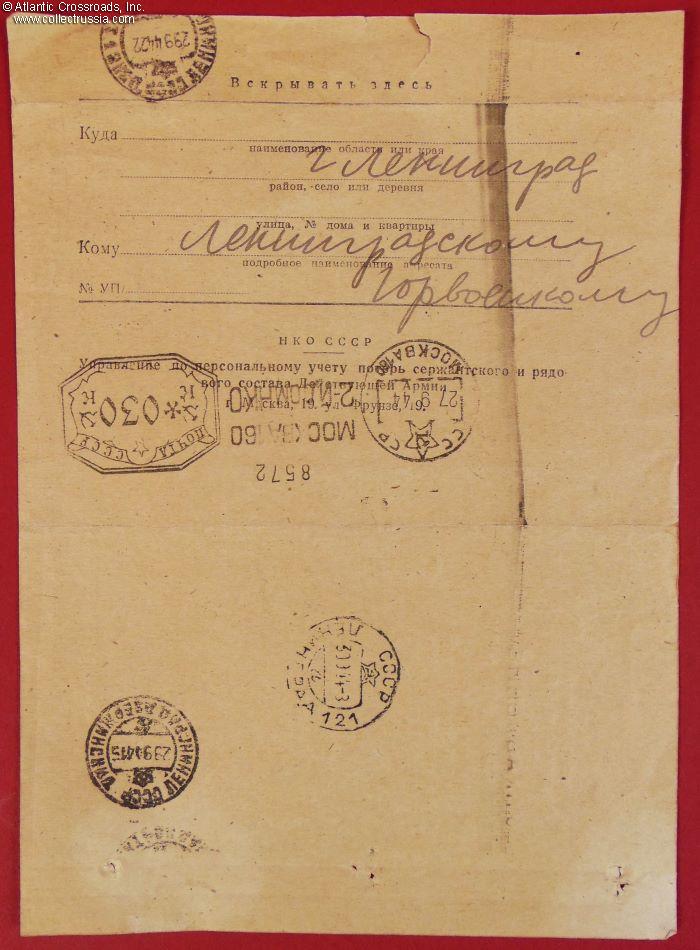 © Atlantic Crossroads, Inc.
www.collectrussia.com
29 9 44 22
Вскрывать здесь
Куда
наименование области или края
г Ленинград
район, село или деревня
улица, № дома и квартиры
Кому Ленинградскому
подробное наименование адресата
№ УП/ Горвоенкому
НКО СССР
Управление по персональному учету потерь сержантского и рядо-
вого состава Действующей Армии
Москва, 19. ул Фрунзе, 19.
МОСКВА 160
27 9 44
СССР
К *030 К
ПОЧТА СССР
МОСКВА 160
8572
СССР
ЛЕНИНГРАД 121
ЛЕНИНГРАД ДЗЕРЖИНСКИЙ
СССР
29 9 44 15